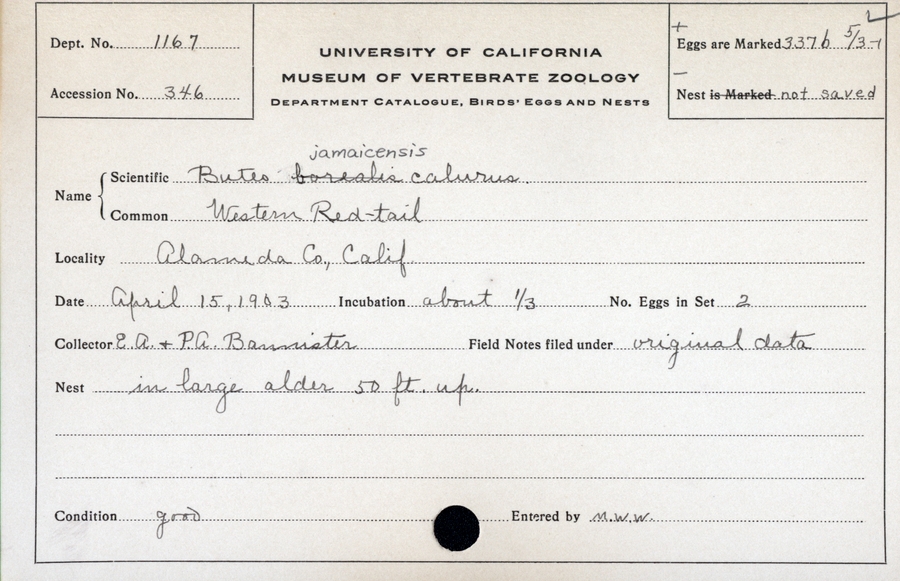 Dept. No. 1167
Accession No. 346
UNIVERSITY OF CALIFORNIA
MUSEUM OF VERTEBRATE ZOOLOGY
DEPARTMENT CATALOGUE, BIRDS' EGGS AND NESTS
+
Eggs are Marked 337b 5/3-1
—
Nest is Marked not saved
jamaicensis
Name
Scientific Buteo borealis calurus.
Common Western Red-tail
Locality Alameda Co., Calif.
Date April 15, 1903 Incubation about 1/3 No. Eggs in Set 2
Collector E.A. + P.A. Bannister Field Notes filed under original data
Nest in large alder 50 ft. up.
Condition good Entered by M.W.W.